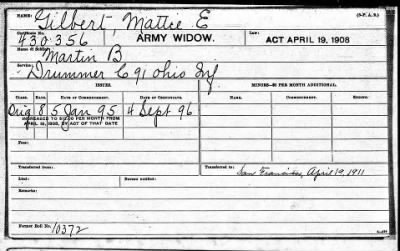 NAME: Gilbert, Mattie E (3-P. A. B.)
Certificate No. 430.356 ARMY WIDOW. Law: ACT APRIL 19, 1908
Name of Soldier: Martin B
Service: Drummer C 91 Ohio Inf
ISSUES. MINORS— PER MONTH ADDITIONAL.
CLASS. RATE. DATE OF COMMENCEMENT. DATE OF CERTIFICATE. NAME. DATE OF COMMENCEMENT.
Orig 8 5 Jan 95 4 Sept 96
INCREASED TO $12.00 PER MONTH FROM
APRIL 19, 1908, BY ACT OF THAT DATE
Fee:
Transferred from: Transferred to: San Francisco, April 19, 1911
Died: Bureau notified:
Remarks:
Former Roll No. 10372